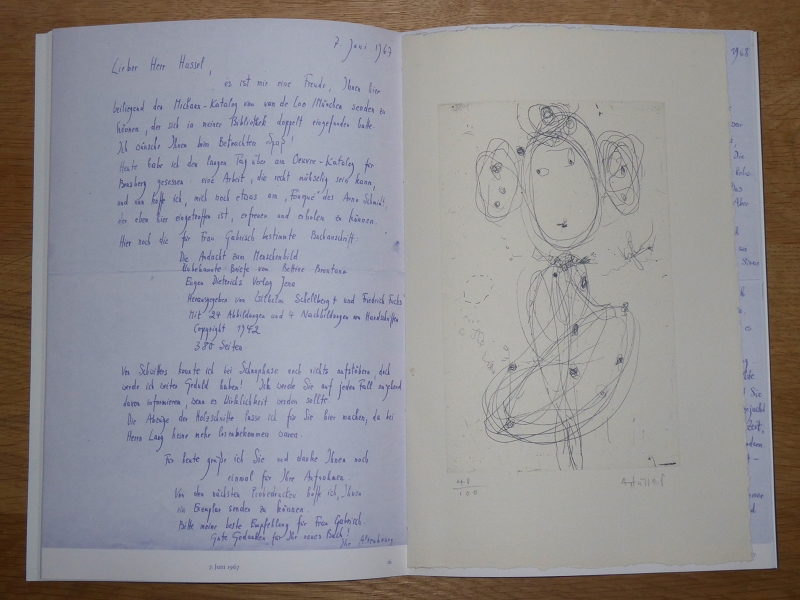 7. Juni 1967
Lieber Herr Hussel,
es ist mir eine Freude, Ihnen hier
beiliegend den Michaux-Katalog von van de Loo /München senden zu
können, der sich in meiner Bibliothek doppelt eingefunden hatte.
Ich wünsche Ihnen beim Betrachten Spaß!
Heute habe ich den langen Tag über am Oeuvre-Katalog für
Brusberg gesessen: eine Arbeit, die recht mühselig sein kann,
und nun hoffe ich, mich noch etwas am des Arno Schmidt,
der eben hier eingetroffen ist, erfreuen und erholen zu können.
Hier noch die für Frau Gabrisch bestimmte Buchanschrift:
Die Andacht zum Menschenbild
Unbekannte Briefe von Bettine Brentano
Eugen Diederichs Verlag Jena
Herausgegeben von Wilhelm Schellberg † und Friedrich Fuchs
Mit 24 Abbildungen und 4 Nachbildungen von Handschriften
Copyright 1942
380 Seiten
Von Schwitters konnte ich bei Schnuphase noch nichts aufstöbern, doch
werde ich weiter Geduld haben! Ich werde Sie auf jeden Fall umgehend
davon informieren, wenn es Wirklichkeit werden sollte.
Die Abzüge der Holzschnitte lasse ich für Sie hier machen, da bei
Herrn Lang keine mehr loszubekommen waren.
Für heute grüße ich Sie und danke Ihnen noch
einmal für Ihre Aufnahmen.
Von den nächsten Probedrucken hoffe ich, Ihnen
ein Exemplar senden zu können.
Bitte meine beste Empfehlung für Frau Gabrisch.
Gute Gedanken für Ihr neues Buch!
Ihr Altenbourg
7. Juni 1967
48
100
1968